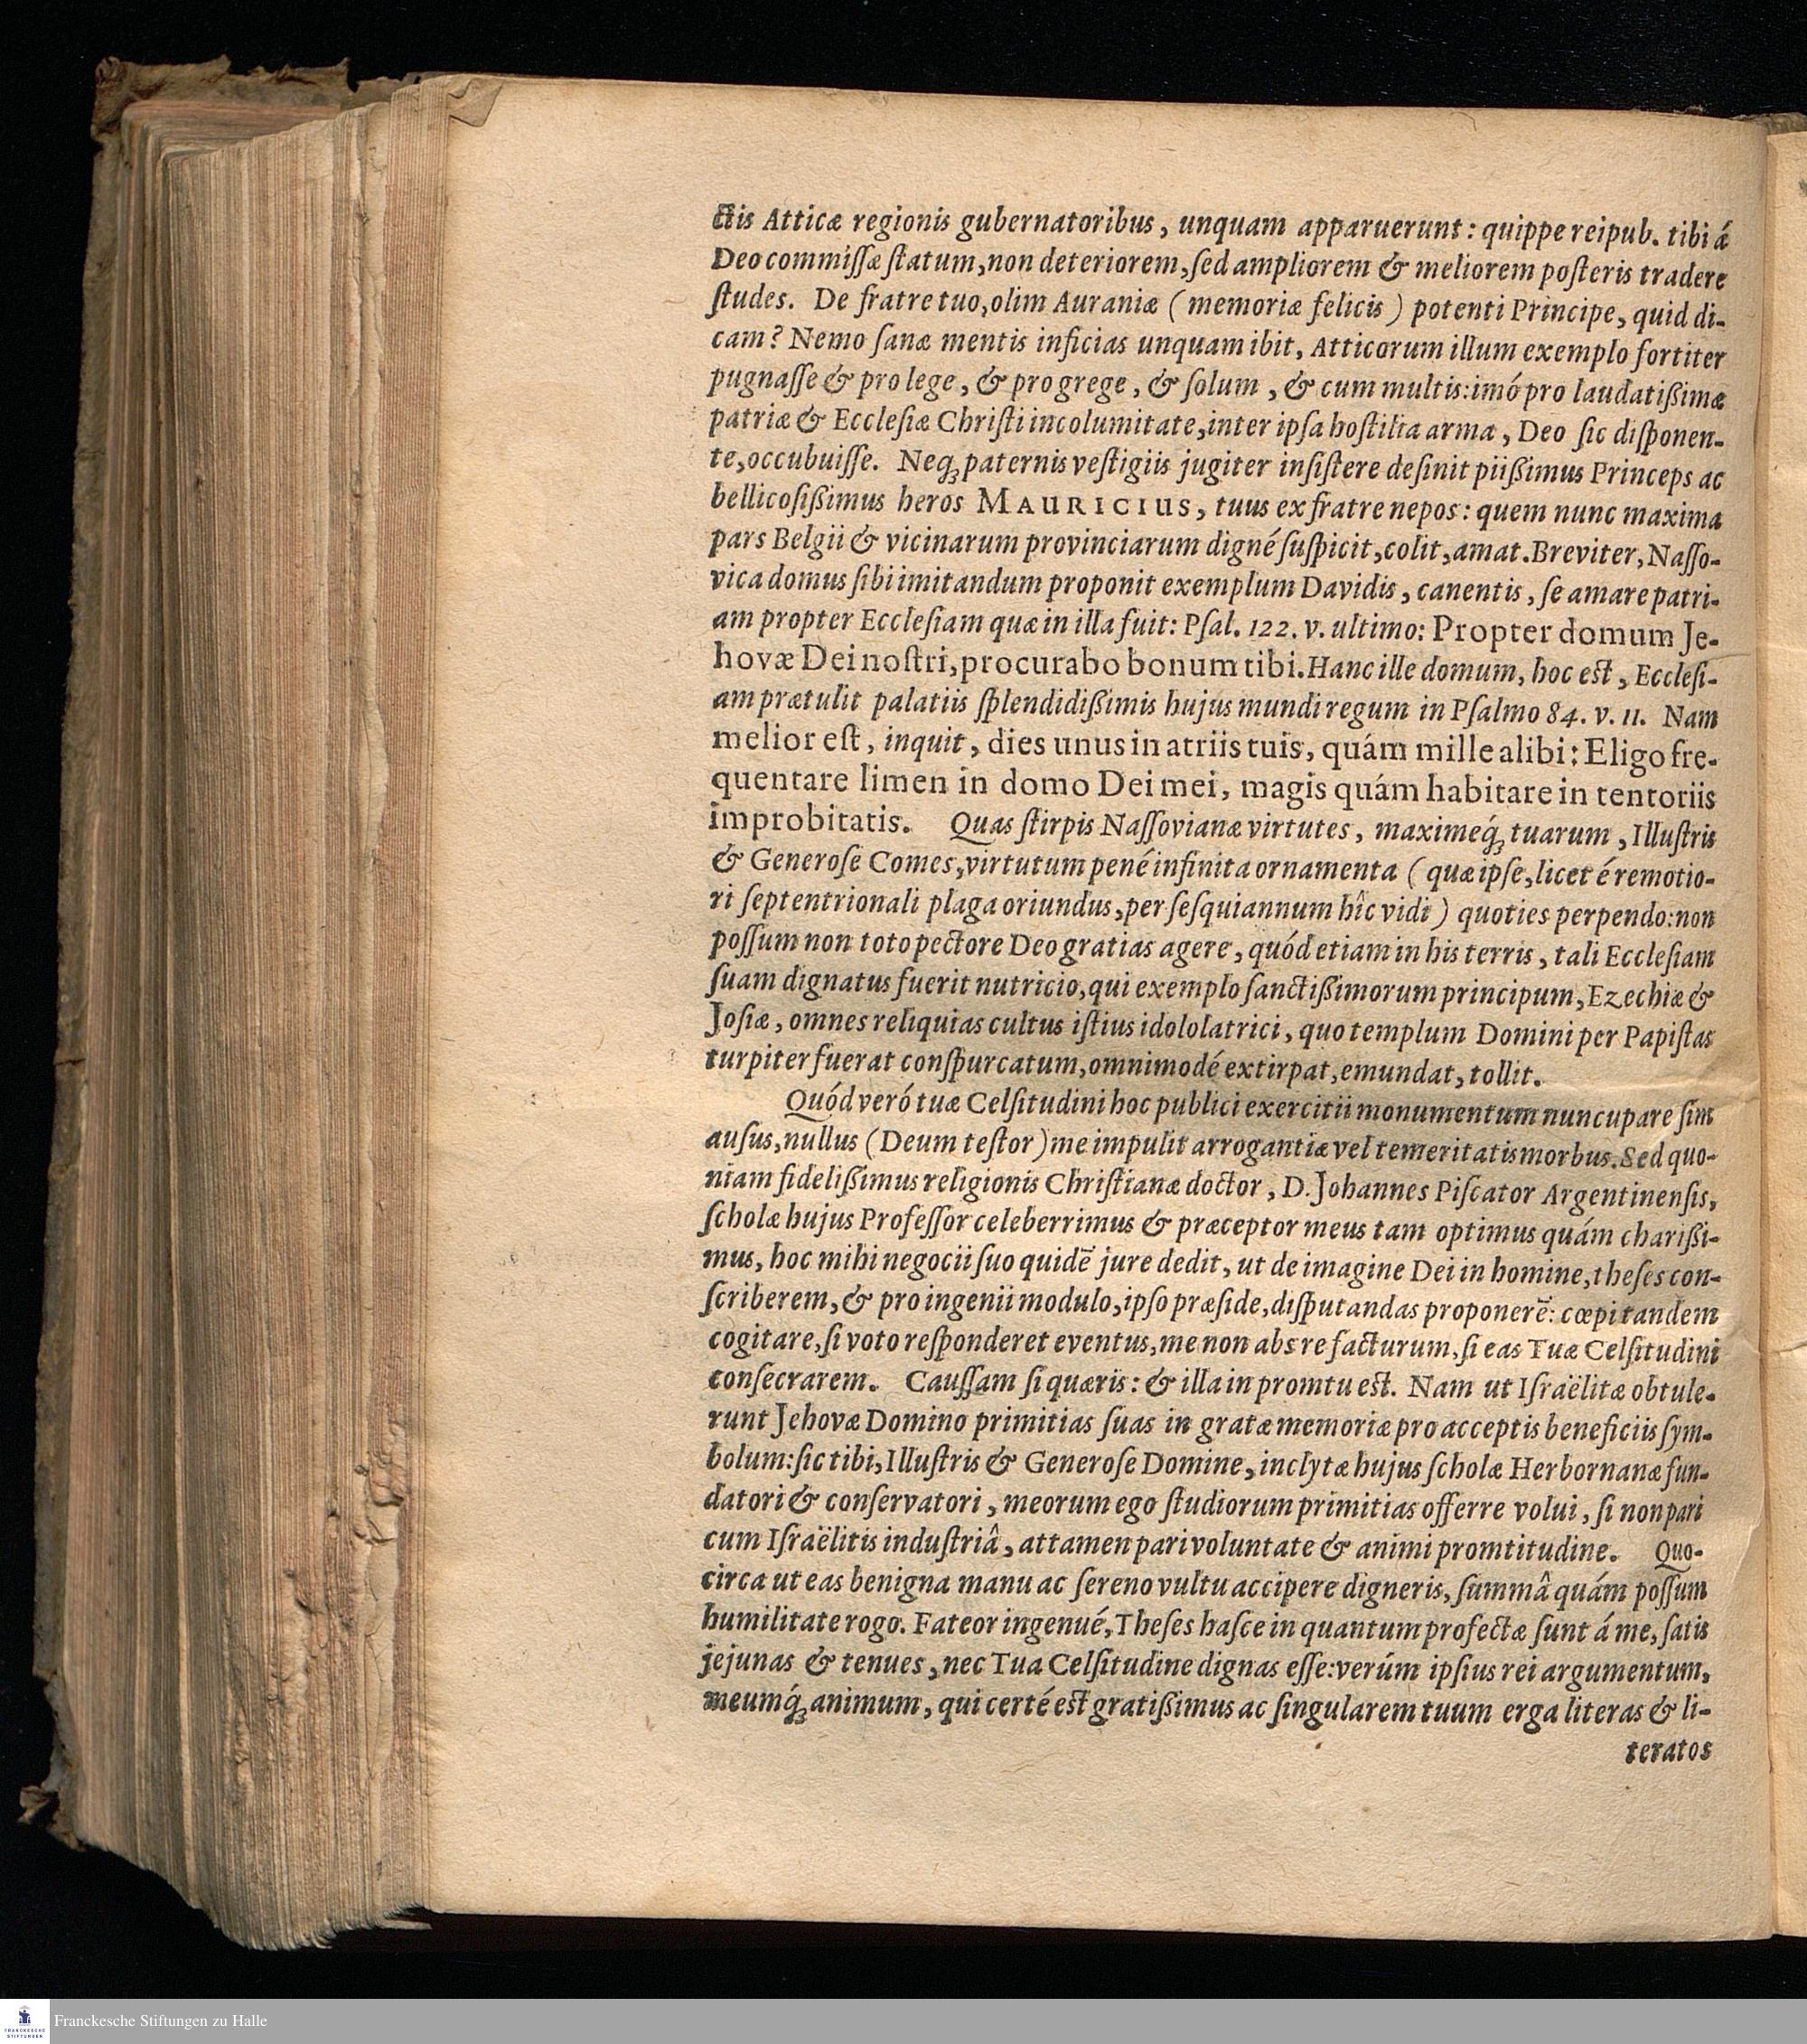 ctis Atticæ regionis gubernatoribus, unquam apparuerunt: quippe reipub. tibi á
Deo commiſſæ ſtatum, non deteriorem, ſed ampliorem & meliorem poſteris tradere
ſtudes. De fratre tuo, olim Auraniæ (memoriæ felicis) potenti Principe, quid di-
cam? Nemo ſanæ mentis inficias unquam ibit, Atticorum illum exemplo fortiter
pugnaſſe & pro lege, & pro grege, & ſolum, & cum multis: imó pro laudatißimæ
patriæ & Eccleſiæ Chriſti incolumitate, inter ipſa hoſtilia arma, Deo ſic diſponen-
te, occubuiſſe. Neq́ꝫ paternis veſtigiis jugiter inſiſtere deſinit piißimus Princeps ac
bellicoſißimus heros MAURICIUS, tuus ex fratre nepos: quem nunc maxima
pars Belgii & vicinarum provinciarum digné ſuſpicit, colit, amat. Breviter, Naſſo-
vica domus ſibi imitandum proponit exemplum Davidis, canentis, ſe amare patri-
am propter Eccleſiam quæ in illa fuit: Pſal. 122. v. ultimo: Propter domum Je-
hovæ Dei noſtri, procurabo bonum tibi. Hanc ille domum, hoc eſt, Eccleſi-
am prætulit palatiis ſplendidißimis hujus mundi regum in Pſalmo 84. v. 11. Nam
melior eſt, inquit, dies unus in atriis tuis, quám mille alibi: Eligo fre-
quentare limen in domo Dei mei, magis quám habitare in tentoriis
improbitatis. Quas ſtirpis Naſſovianæ virtutes, maximeq́ꝫ tuarum, Illuſtris
& Generoſe Comes, virtutum pené infinita ornamenta (quæ ipſe, licet é remotio-
ri ſeptentrionali plaga oriundus, per ſeſquiannum hîc vidi) quoties perpendo: non
poſſum non toto pectore Deo gratias agere, quód etiam in his terris, tali Eccleſiam
ſuam dignatus fuerit nutricio, qui exemplo ſanctißimorum principum, Ezechiæ &
Joſiæ, omnes reliquias cultus iſtius idololatrici, quo templum Domini per Papiſtas
turpiter fuerat conſpurcatum, omnimodé extirpat, emundat, tollit.
Quód veró tuæ Celſitudini hoc publici exercitii monumentum nuncupare ſim
auſus, nullus (Deum teſtor) me impulit arrogantiæ vel temeritatis morbus. Sed quo-
niam fidelißimus religionis Chriſtianæ doctor, D. Johannes Piſcator Argentinenſis,
ſcholæ hujus Profeſſor celeberrimus & præceptor meus tam optimus quám charißi-
mus, hoc mihi negocii ſuo quidē jure dedit, ut de imagine Dei in homine, theſes con-
ſcriberem, & pro ingenii modulo, ipſo præſide, diſputandas proponerē: cœpi tandem
cogitare, ſi voto reſponderet eventus, me non abs re facturum, ſi eas Tuæ Celſitudini
conſecrarem. Cauſſam ſi quæris: & illa in promtu eſt. Nam ut Iſraëlitæ obtule-
runt Jehovæ Domino primitias ſuas in gratæ memoriæ pro acceptis beneficiis ſym-
bolum: ſic tibi, Illuſtris & Generoſe Domine, inclytæ hujus ſcholæ Herbornanæ fun-
datori & conſervatori, meorum ego ſtudiorum primitias offerre volui, ſi non pari
cum Iſraëlitis induſtriâ, attamen pari voluntate & animi promtitudine. Quo-
circa ut eas benigna manu ac ſereno vultu accipere digneris, ſummâ quám poſſum
humilitate rogo. Fateor ingenué, Theſes haſce in quantum profectæ ſunt á me, ſatis
jejunas & tenues, nec Tua Celſitudine dignas eſſe: verúm ipſius rei argumentum,
meumq́ꝫ animum, qui certé eſt gratißimus ac ſingularem tuum erga literas & li-
teratos
FRANCKESCHE
STIFTUNGEN
Franckesche Stiftungen zu Halle